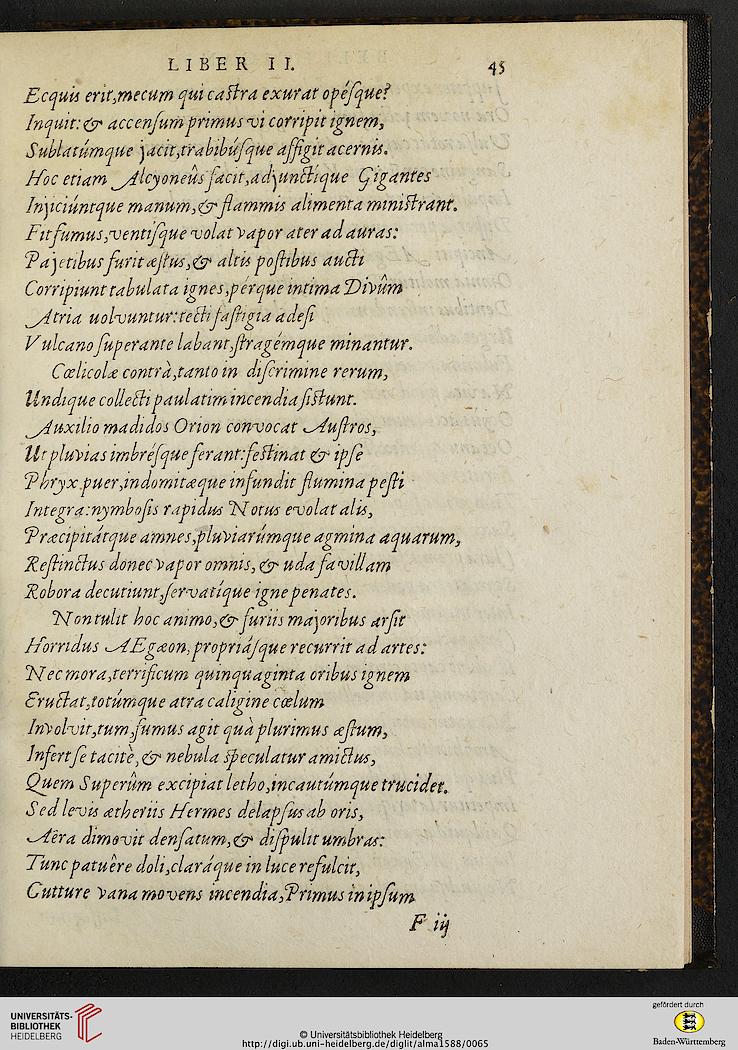 LIBER II. 45
Ecquis erit,mecum qui castra exurat opésque?
Inquit:& accensum primus vi corripit ignem,
Sublatúmque jacit,trabibúsque affigit acernis.
Hoc etiam Alcyoneûs facit,adjunctíque Gigantes
Injiciúntque manum,& flammis alimenta ministrant.
Fit fumus,ventísque volat vapor ater ad auras:
Pajetibus furit æstus,& altis postibus aucti
Corripiunt tabulata ignes,pérque intima Divûm
Atria uolvuntur:tecti fastigia adesi
Vulcano superante labant,stragémque minantur.
Cœlicolæ contrà,tanto in discrimine rerum,
Undique collecti paulatim incendia sistunt.
Auxilio madidos Orion convocat Austros,
Ut pluvias imbrésque ferant:festinat & ipse
Phryx puer,indomitæque infundit flumina pesti
Integra:nymbosis rapidus Notus evolat alis,
Præcipitátque amnes,pluviarúmque agmina aquarum,
Restinctus donec vapor omnis,& uda favillam
Robora decutiunt,servatíque igne penates.
Non tulit hoc animo,& furiis majoribus arsit
Horridus AEgæon,propriásque recurrit ad artes:
Nec mora,terrificum quinquaginta oribus ignem
Eructat,totúmque atra caligine cœlum
Involvit,tum,fumus agit quà plurimus æstum,
Infert se tacitè,& nebula speculatur amictus,
Quem Superûm excipiat letho,incautúmque trucidet.
Sed levis ætheriis Hermes delapsus ab oris,
Aëra dimovit densatum,& dispulit umbras:
Tunc patuêre doli,claráque in luce refulcit,
Gutture vana movens incendia,Primus in ipsum
F iij
UNIVERSITÄTS-
BIBLIOTHEK
HEIDELBERG
© Universitätsbibliothek Heidelberg
http://digi.ub.uni-heidelberg.de/diglit/alma1588/0065
gefördert durch
Baden-Württemberg